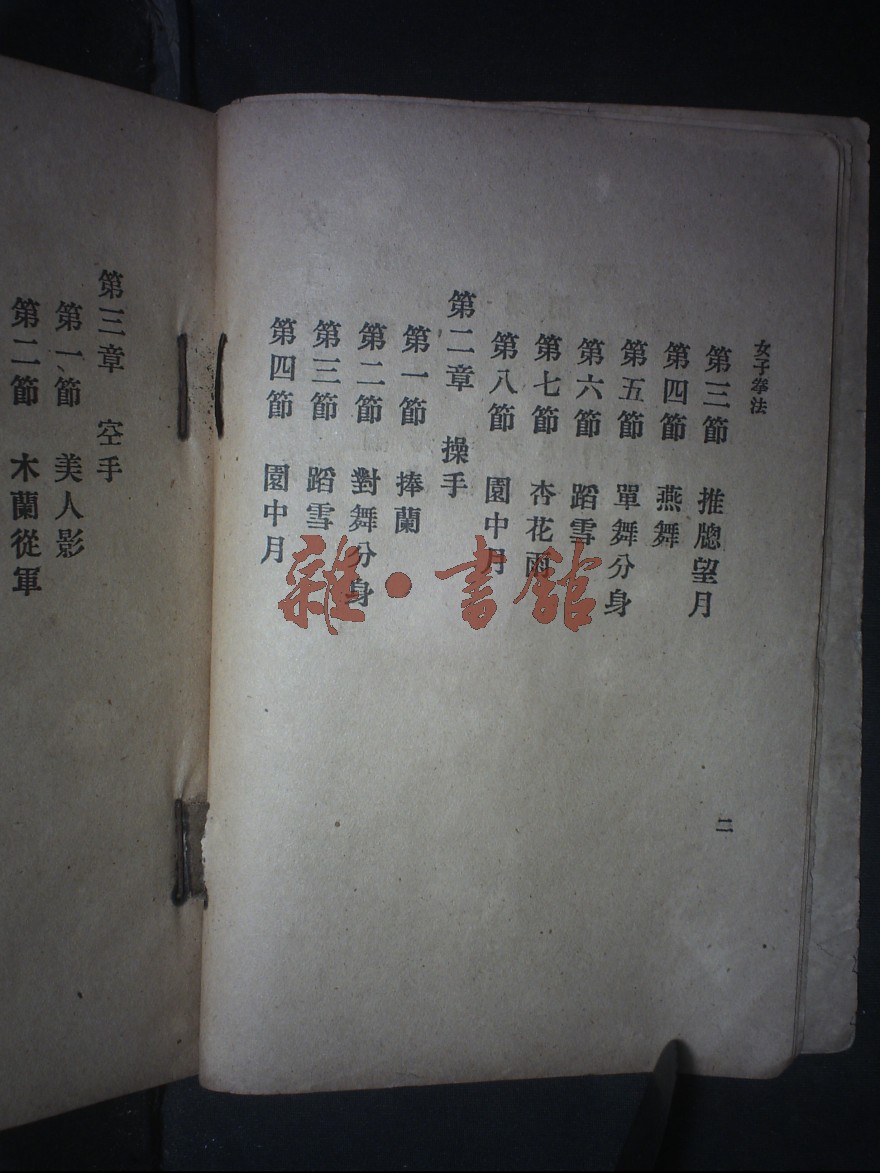 女子拳法
第三節 推牕望月
第四節 燕舞
第五節 單舞分身
第六節 蹈雪
第七節 杏花雨
第八節 園中月
第二章 操手
第一節 捧蘭
第二節 對舞分身
第三節 蹈雪
第四節 園中月
二
第三章 空手
第一節 美人影
第二節 木蘭從軍
雜·書館